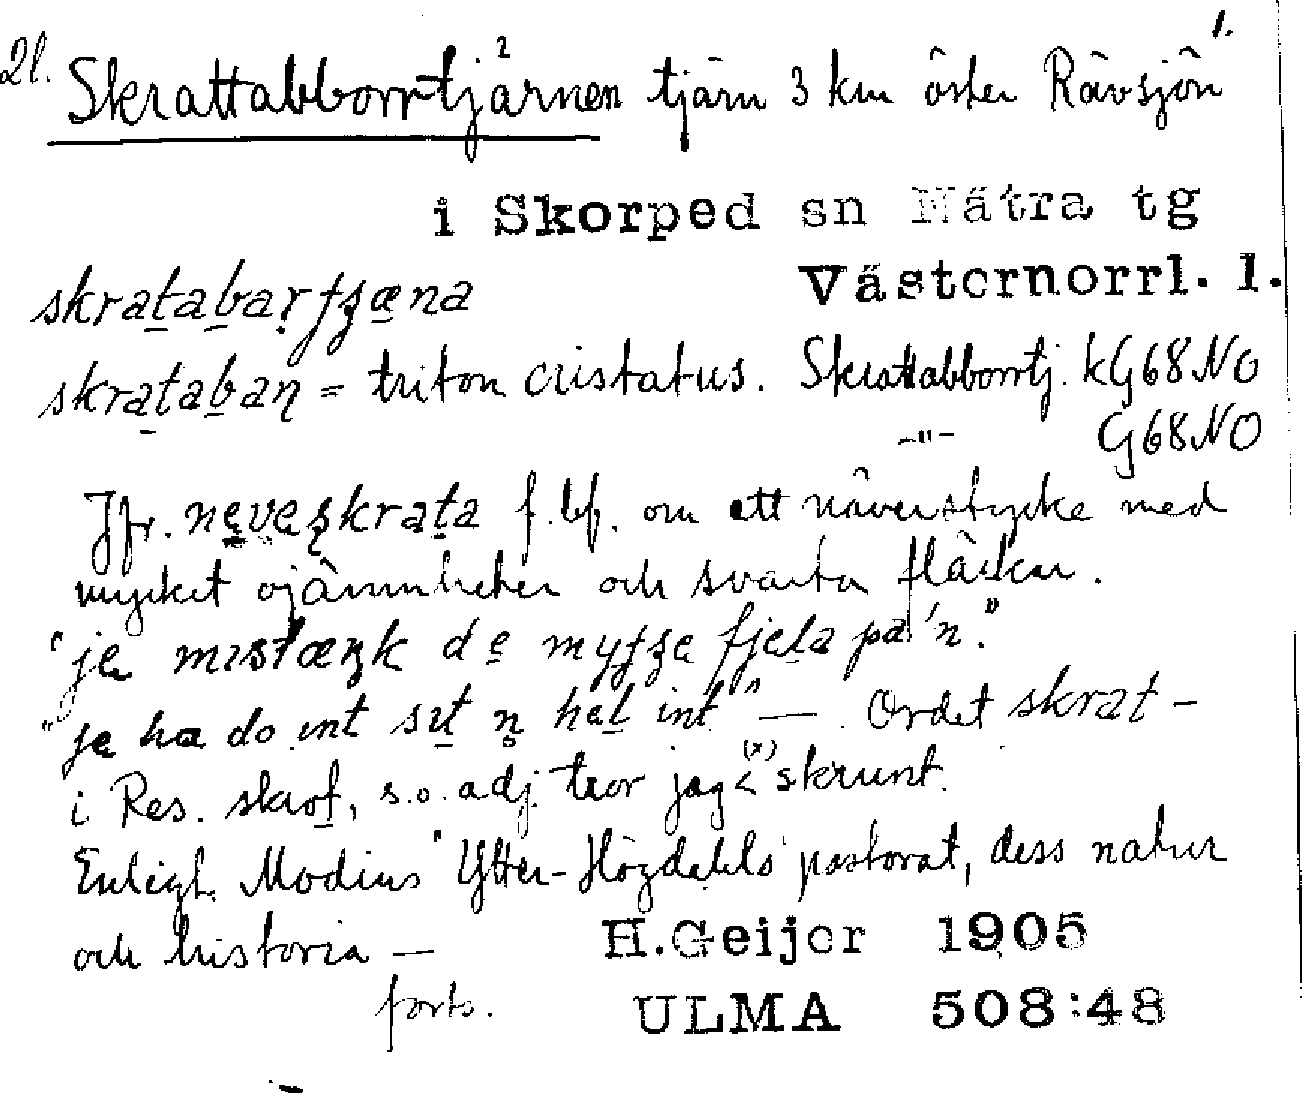 2l. Skrattabborrtjärnen² tjärn 3 km öster Rävsjön 1.
i Skorped sn Nätra tg
Västernorrl. l.
skratabarţʂæna
skrataban = triton cristatus. Skrattabborrtj. kG68NO
-"- G68NO
Jfr. neveskrata f. bf. om ett näverstycke med
mycket ojämnheter och svarta fläckar.
"je mıstæŋk de myţʂe fjela på'n."
"je ha do int sıt n hel int" — Ordet skrat-
i Res. skrof, s.o. adj. tror jag < (x) skrunt.
Enligt Modins "Ytter-Högdals pastorat, dess natur
och historia —
H.Geijer 1905
forts.
ULMA 508:48